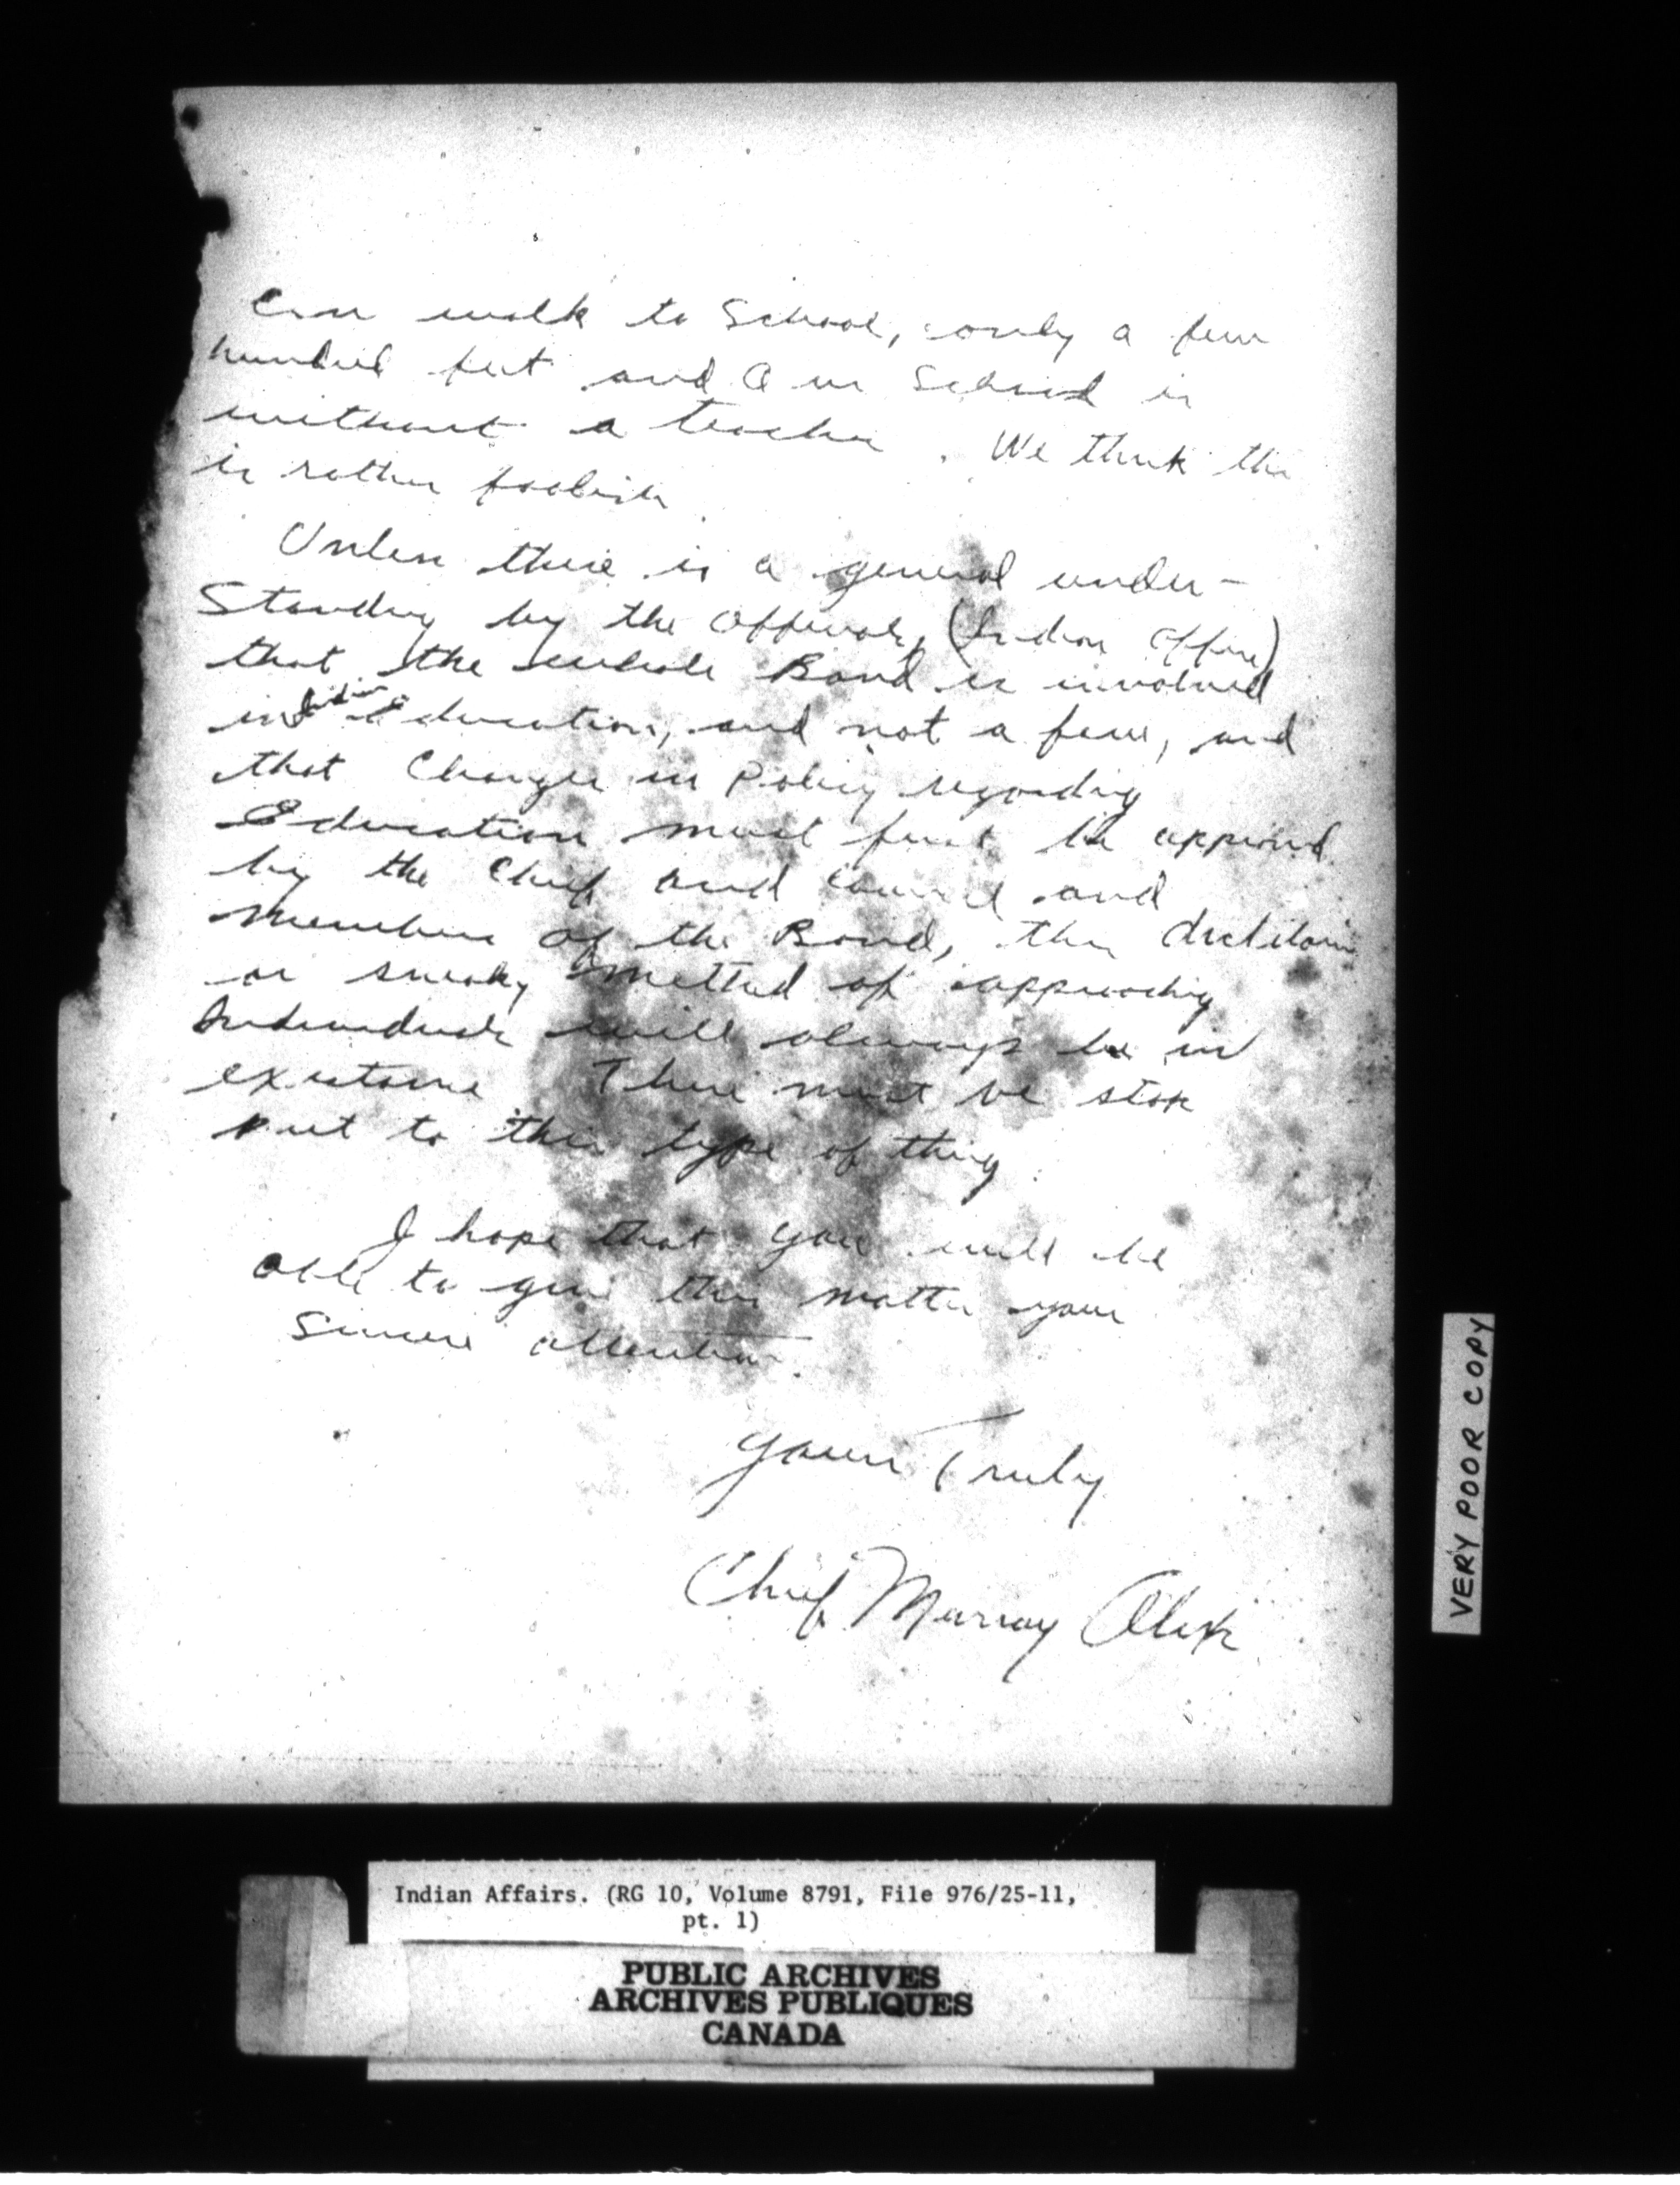 can walk to School, only a few
hundred feet and Our School is
without a teacher. We think this
is rather foolish.
Unless there is a general under-
standing by the Officials, (Indian Office)
that the whole Band is involved
in Indian Education, and not a few, and
that Changes in Policy regarding
Education must first be approved
by the Chief and Council and
members of the Band, this
or sneaky method of approaching
Individuals will always be in
existance There must be stop
put to this type of thing
I hope that you will be
able to give this matter your
Sincere attention
Yours Truly
Chief Murray Alek
VERY POOR COPY
Indian Affairs. (RG 10, Volume 8791, File 976/25-11,
pt. 1)
PUBLIC ARCHIVES
ARCHIVES PUBLIQUES
CANADA